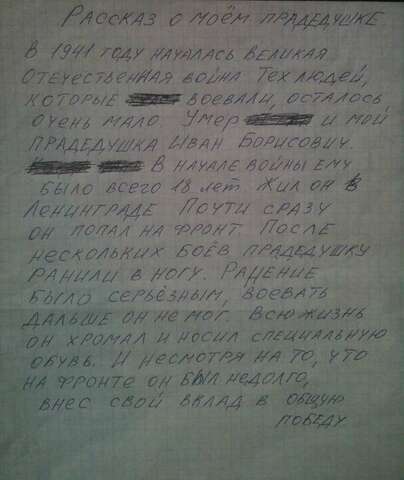 Рассказ о моём прадедушке
В 1941 году началась Великая
Отечественная война Тех людей,
которые воевали, осталось
очень мало Умер и мой
прадедушка Иван Борисович.
В начале войны ему
было всего 18 лет. Жил он в
Ленинграде Почти сразу
он попал на фронт После
нескольких боёв прадедушку
ранили в ногу. Ранение
было серьёзным, воевать
дальше он не мог. Всю жизнь
он хромал и носил специальную
обувь. И несмотря на то, что
на фронте он был недолго,
внес свой вклад в общую
победу